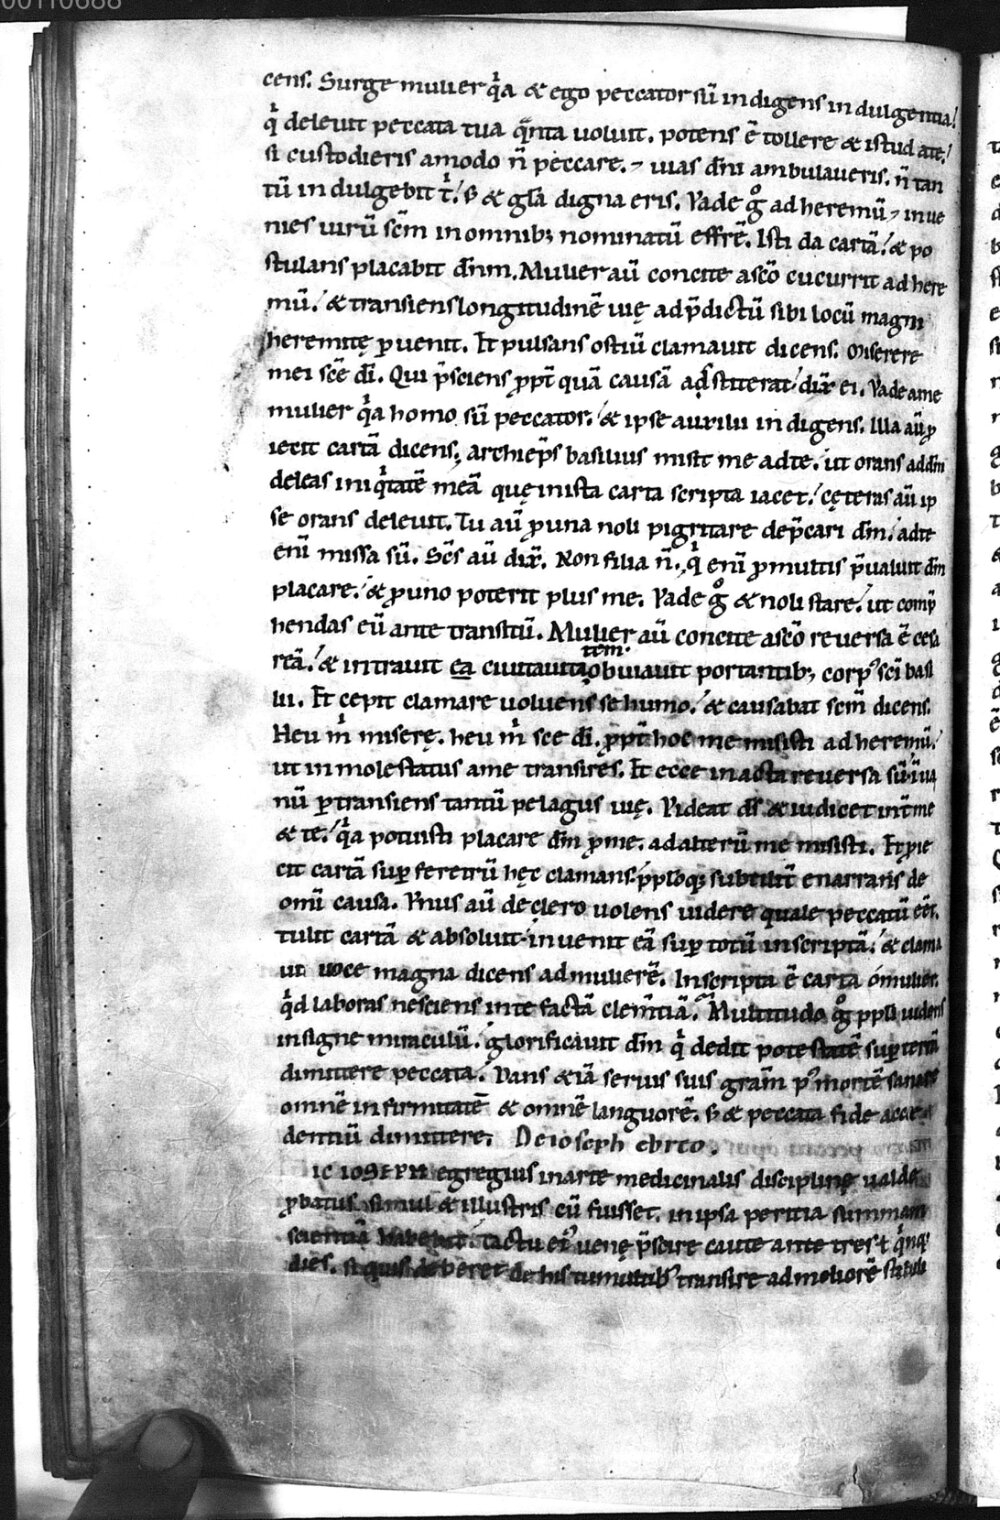 00110688
cens. Surge mulier q̇a & ego peccator sū indigens indulgentia!
q̇ deleuit peccata tua q̄nta uoluit. potens ē tollere & istud a te!
si custodieris amodo n̄ peccare. ⁊ uias dn̄i ambulaueris. n̄ tan
tū indulgebit t̄! s; & gl̄a digna eris. Vade gͦ ad heremū ⁊ inue
nies uirū sc̄m in omnib; nominatū effrē. Isti da cartā! & po
stulans placabit dn̄m. Mulier aū concite asc̄o cucurrit ad here
mū! & transiens longitudinē uię ad p̄dictū sibi locū magni
heremitę ꝑuenit. Et pulsans ostiū clamauit dicens. Miserere
mei sc̄e dī. Qui p̄sciens ꝓpt̄ quā causā adstiterat! dix̄ ei. Vade a me
mulier q̇a homo sū peccator! & ipse auxilii indigens. Illa aū ꝓ
iecit cartā dicens, archiep̄s basilius misit me ad te! ut orans ad dn̄m
deleas iniq̇tatē meā que in ista carta scripta iacet! cęteras aū ip
se orans deleuit. Tu aū ꝓ una noli pigritare dep̄cari dn̄m! ad te
enī missa sū. Sc̄s aū dix̄. Non filia n̄. q̇ enī ꝓ multis p̄ualuit dm̄
placare! & ꝓ uno poterit plus me. Vade gͦ & noli stare! ut comp̄
hendas eū ante transitū. Mulier aū concite asc̄o reuersa ē cesa
reā! & intrauit ea ciuitauit obuiauit portantib; corpꝰ sc̄i basi
tem.
lii. Et cepit clamare uoluens se humo! & causabat sc̄m dicens.
Heu m̄ miserę. heu m̄ sc̄e dī. ꝓpt̄ hoc me misisti ad heremū!
ut in molestatus a me transires. Et ecce in acta reuersa sū! i ua
nū ꝑtransiens tantū pelagus uię. Videat ds̄ & iudicet int̄ me
& te! q̇a potuisti placare dm̄ ꝓ me. ad alterū me misisti. Et ꝓie
cit cartā suꝑ feretrū hęc clamans. ppl̄oq; subtilit̄ enarrans de
omī causa. Vnus aū de clero uolens uidere quale peccatū eēt.
tulit cartā & absoluit. inuenit eā suꝑ totū inscriptā! & clama
uit uoce magna dicens ad mulierē. Inscripta ē carta ó mulier.
q̇d laboras nesciens in te factā clem̄tiā. Multitudo gͦ ppl̄i uidens
insigne miraculū! glorificauit dm̄ q̇ dedit potestatē suꝑ terrā
dimittere peccata! Dans & iā seruis suis grām pꝰ mortē sanare
omnē infirmitatē & omnē languorē. s; & peccata fide acce
dentiū dimittere. De ioseph ebreo.
ic IOSEPH egregius in arte medicinalis disciplinę ualde
ꝓbatus. simul & illustris cū fuisset. in ipsa peritia summam
scientiā habebat! tactu eiꝰ uenę p̄scire caute ante tres ł q̇nq;
dies. si quis deberet de his tumultib; transire ad meliorē statum